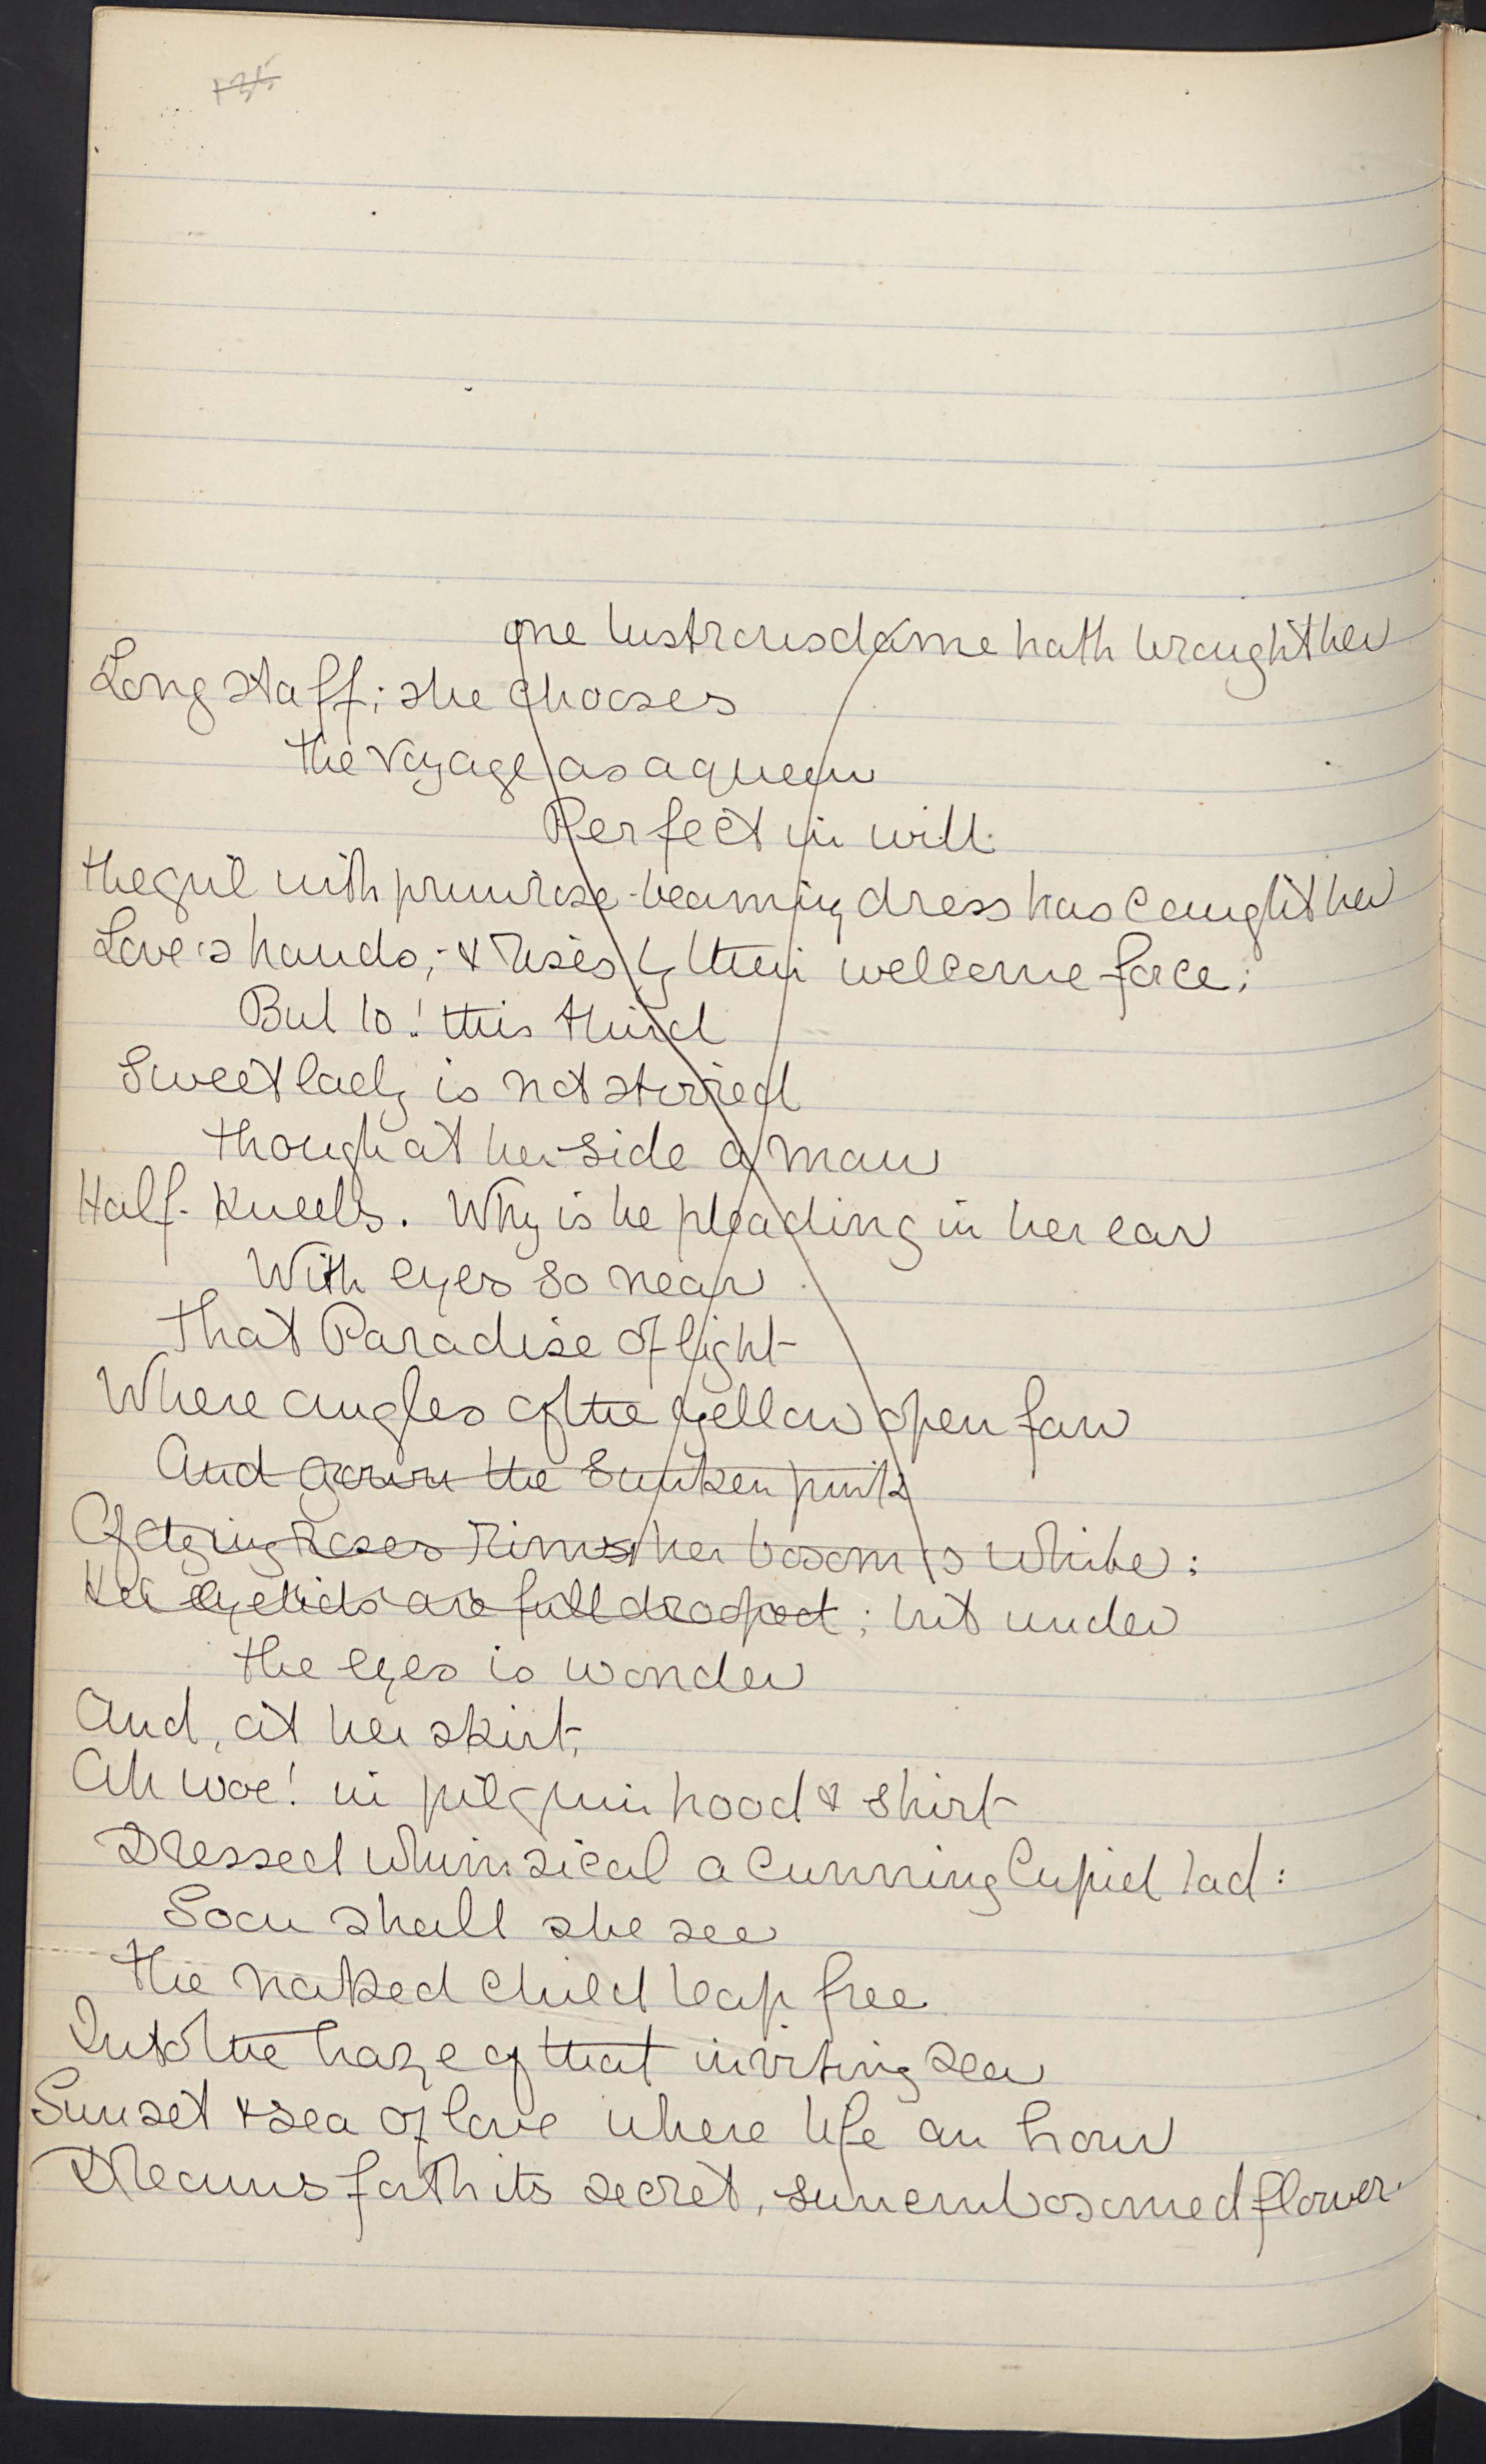 one lustrous dame hath brought her
Long staff; she chooses
the voyage as a queen
Perfect in will.
the girl with primrose-beaming dress has caught her
Love's hands, & rises by their welcome force;
But lo! this third
Sweet lady is not stirred
though at her side a man
Half-kneels. Why is he pleading in her ear
With eyes so near
that Paradise of light
Where angles of the yellow open fan
And gown the sunken pink
Of dying roses rims her bosom's white:
Her eyelids are full dropped; but under
the eyes is wonder
And, at her skirt,
Ah woe! in pilgrim hood & shirt
Dressed whimsical a cunning Cupid lad:
Soon shall she see
the naked child leap free
Into the haze of that inviting sea
Sunset & sea of love where life an hour
Dreams forth its secret, sun embosomed flower.